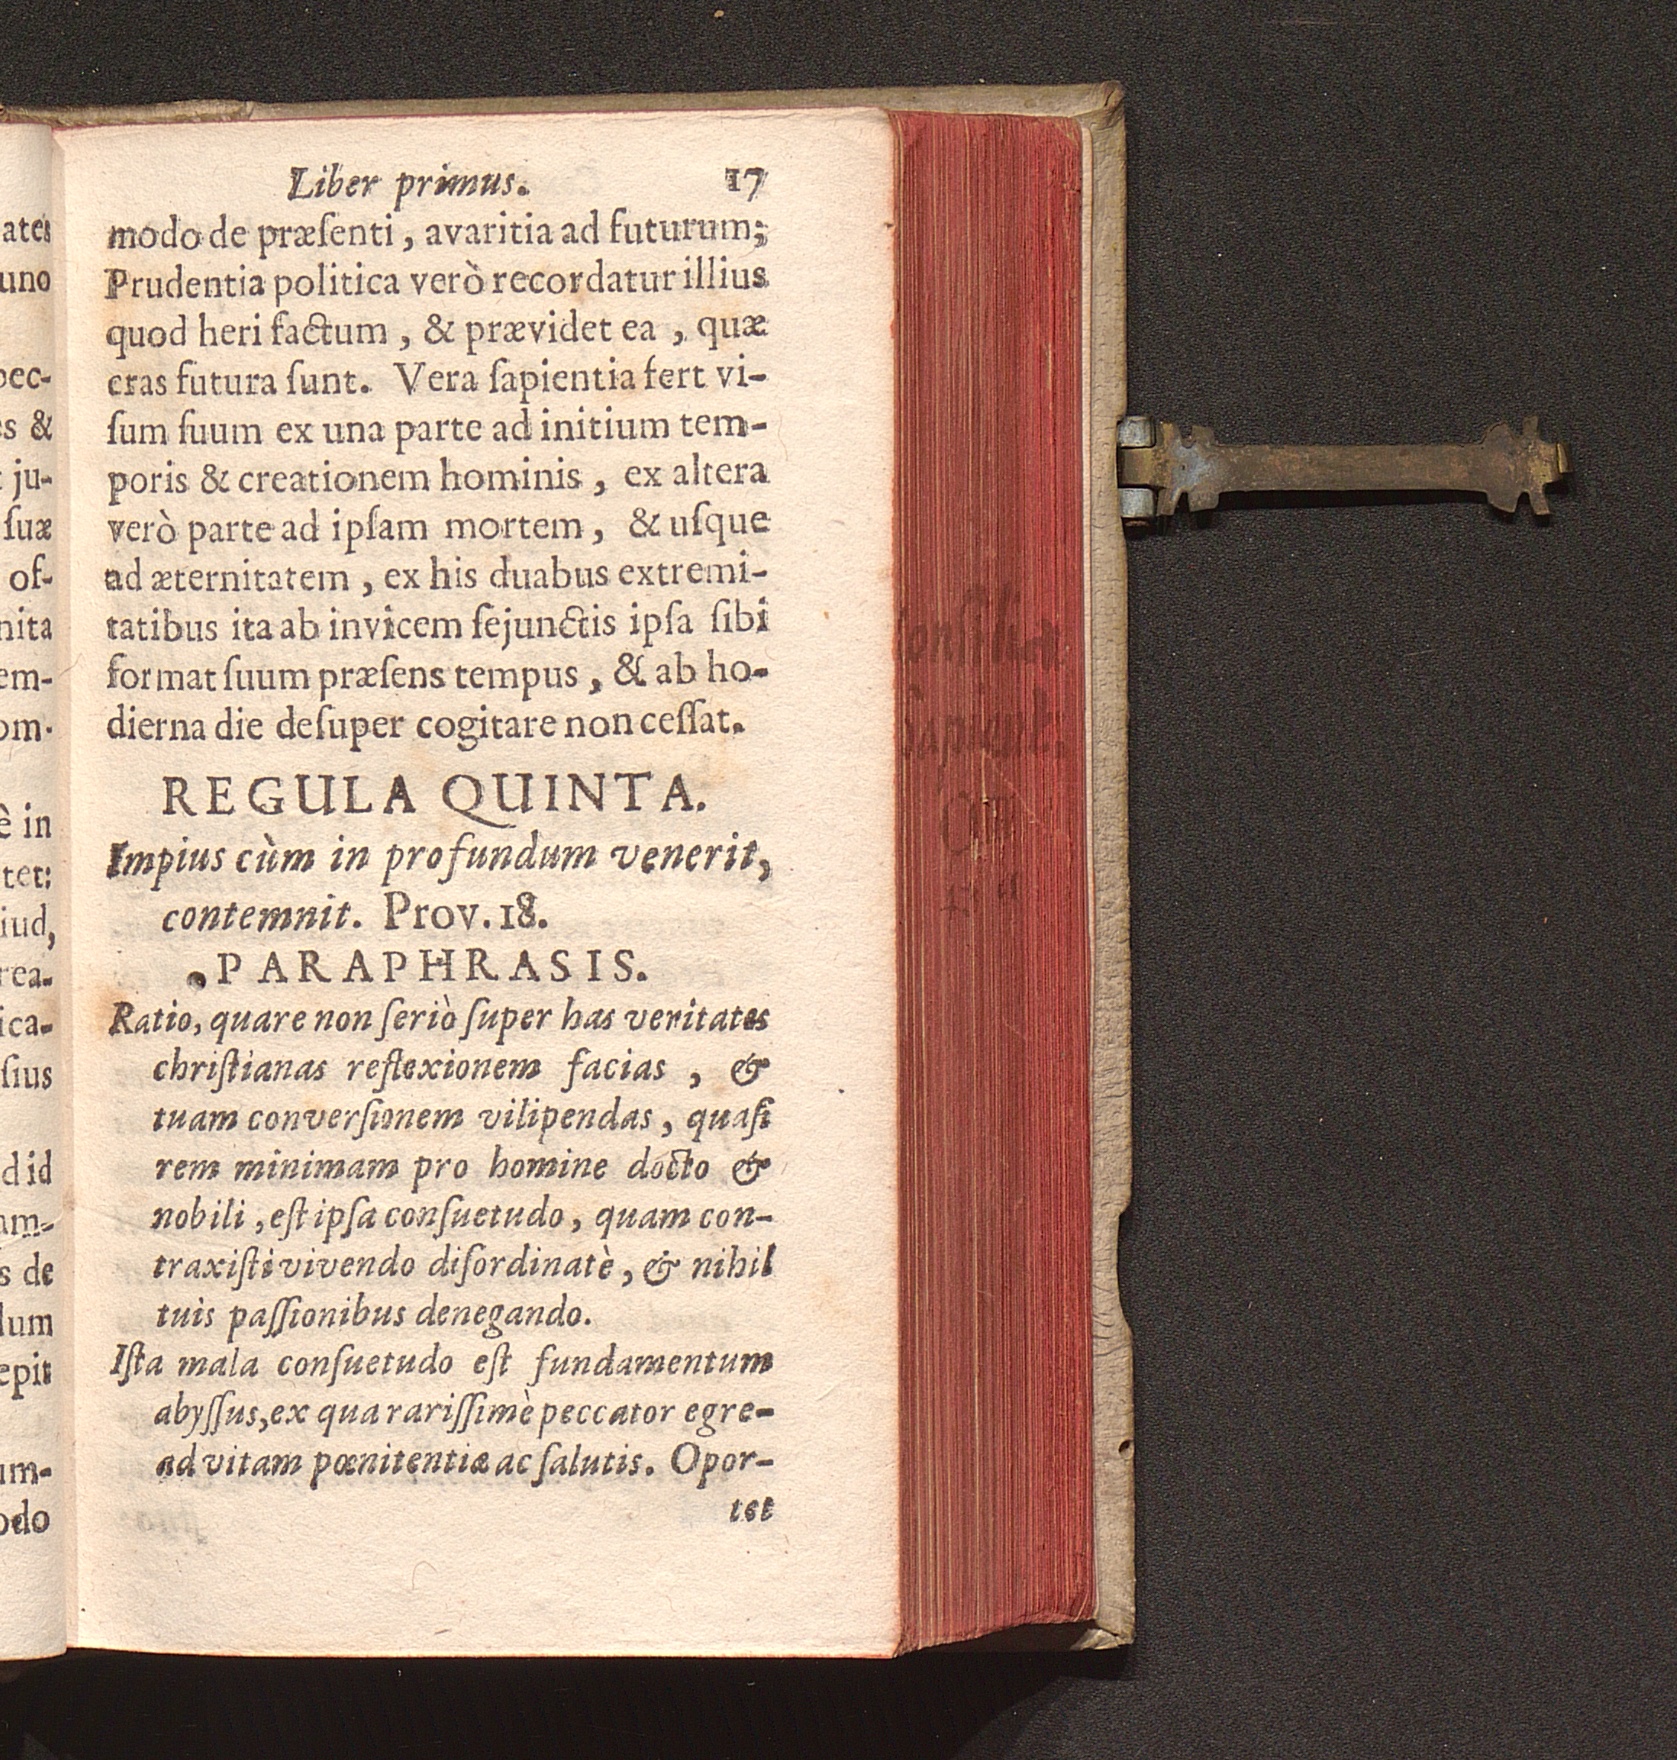 Liber primus. 17
modo de præſenti, avaritia ad futurum;
Prudentia politica verò recordatur illius
quod heri factum, & prævidet ea, quæ
cras futura ſunt. Vera ſapientia fert vi-
ſum ſuum ex una parte ad initium tem-
poris & creationem hominis, ex altera
verò parte ad ipſam mortem, & uſque
ad æternitatem, ex his duabus extremi-
tatibus ita ab invicem ſejunctis ipſa ſibi
format ſuum præſens tempus, & ab ho-
dierna die deſuper cogitare non ceſſat.
REGULA QUINTA.
Impius cùm in profundum venerit,
contemnit. Prov. 18.
PARAPHRASIS.
Ratio, quare non ſeriò ſuper has veritates
chriſtianas reflexionem facias, &
tuam converſionem vilipendas, quaſi
rem minimam pro homine docto &
nobili, eſt ipſa conſuetudo, quam con-
traxiſti vivendo diſordinatè, & nihil
tuis paſſionibus denegando.
Iſta mala conſuetudo eſt fundamentum
abyſſus, ex qua rariſſimè peccator egre-
ad vitam pœnitentiæ ac ſalutis. Opor-
tet
ates
uno
pec-
es &
ju-
ſuæ
of-
nita
em-
om-
è in
tet:
iud,
rea-
ica-
ſius
d id
am-
s de
lum
epit
um-
odo